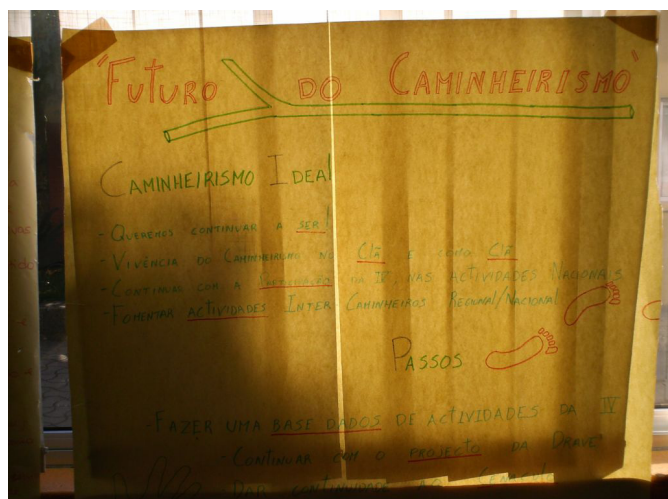 "FUTURO DO CAMINHEIRISMO"
CAMINHEIRISMO IDEAL
- QUEREMOS CONTINUAR A SER!
- VIVÊNCIA DO CAMINHEIRISMO NO CLÃ E COMO CLÃ
- CONTINUAR COM A PARTICIPAÇÃO DA IV, NAS ACTIVIDADES NACIONAIS
- FOMENTAR ACTIVIDADES INTER CAMINHEIROS REGIONAL/NACIONAL
PASSOS
- FAZER UMA BASE DADOS DE ACTIVIDADES DA IV
- CONTINUAR COM O PROJECTO DA DRAVE
DAR CONTINUIDADE AO CENÁCULO